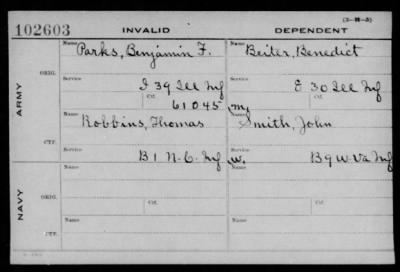 (3-H-5)
102603 INVALID DEPENDENT
Name Parks, Benjamin F. Name Beiter, Benedict
ORIG.
Service I 39 Ill Inf Service E 30 Ill Inf
ARMY
Ctf. 61045 Ctf. m.
Name Robbins, Thomas Name Smith, John
CTF.
Service B 1 N.C. Inf Service w. B 9 W.Va Inf
Name Name
ORIG.
NAVY
Ctf. Ctf.
Name Name
CTF.